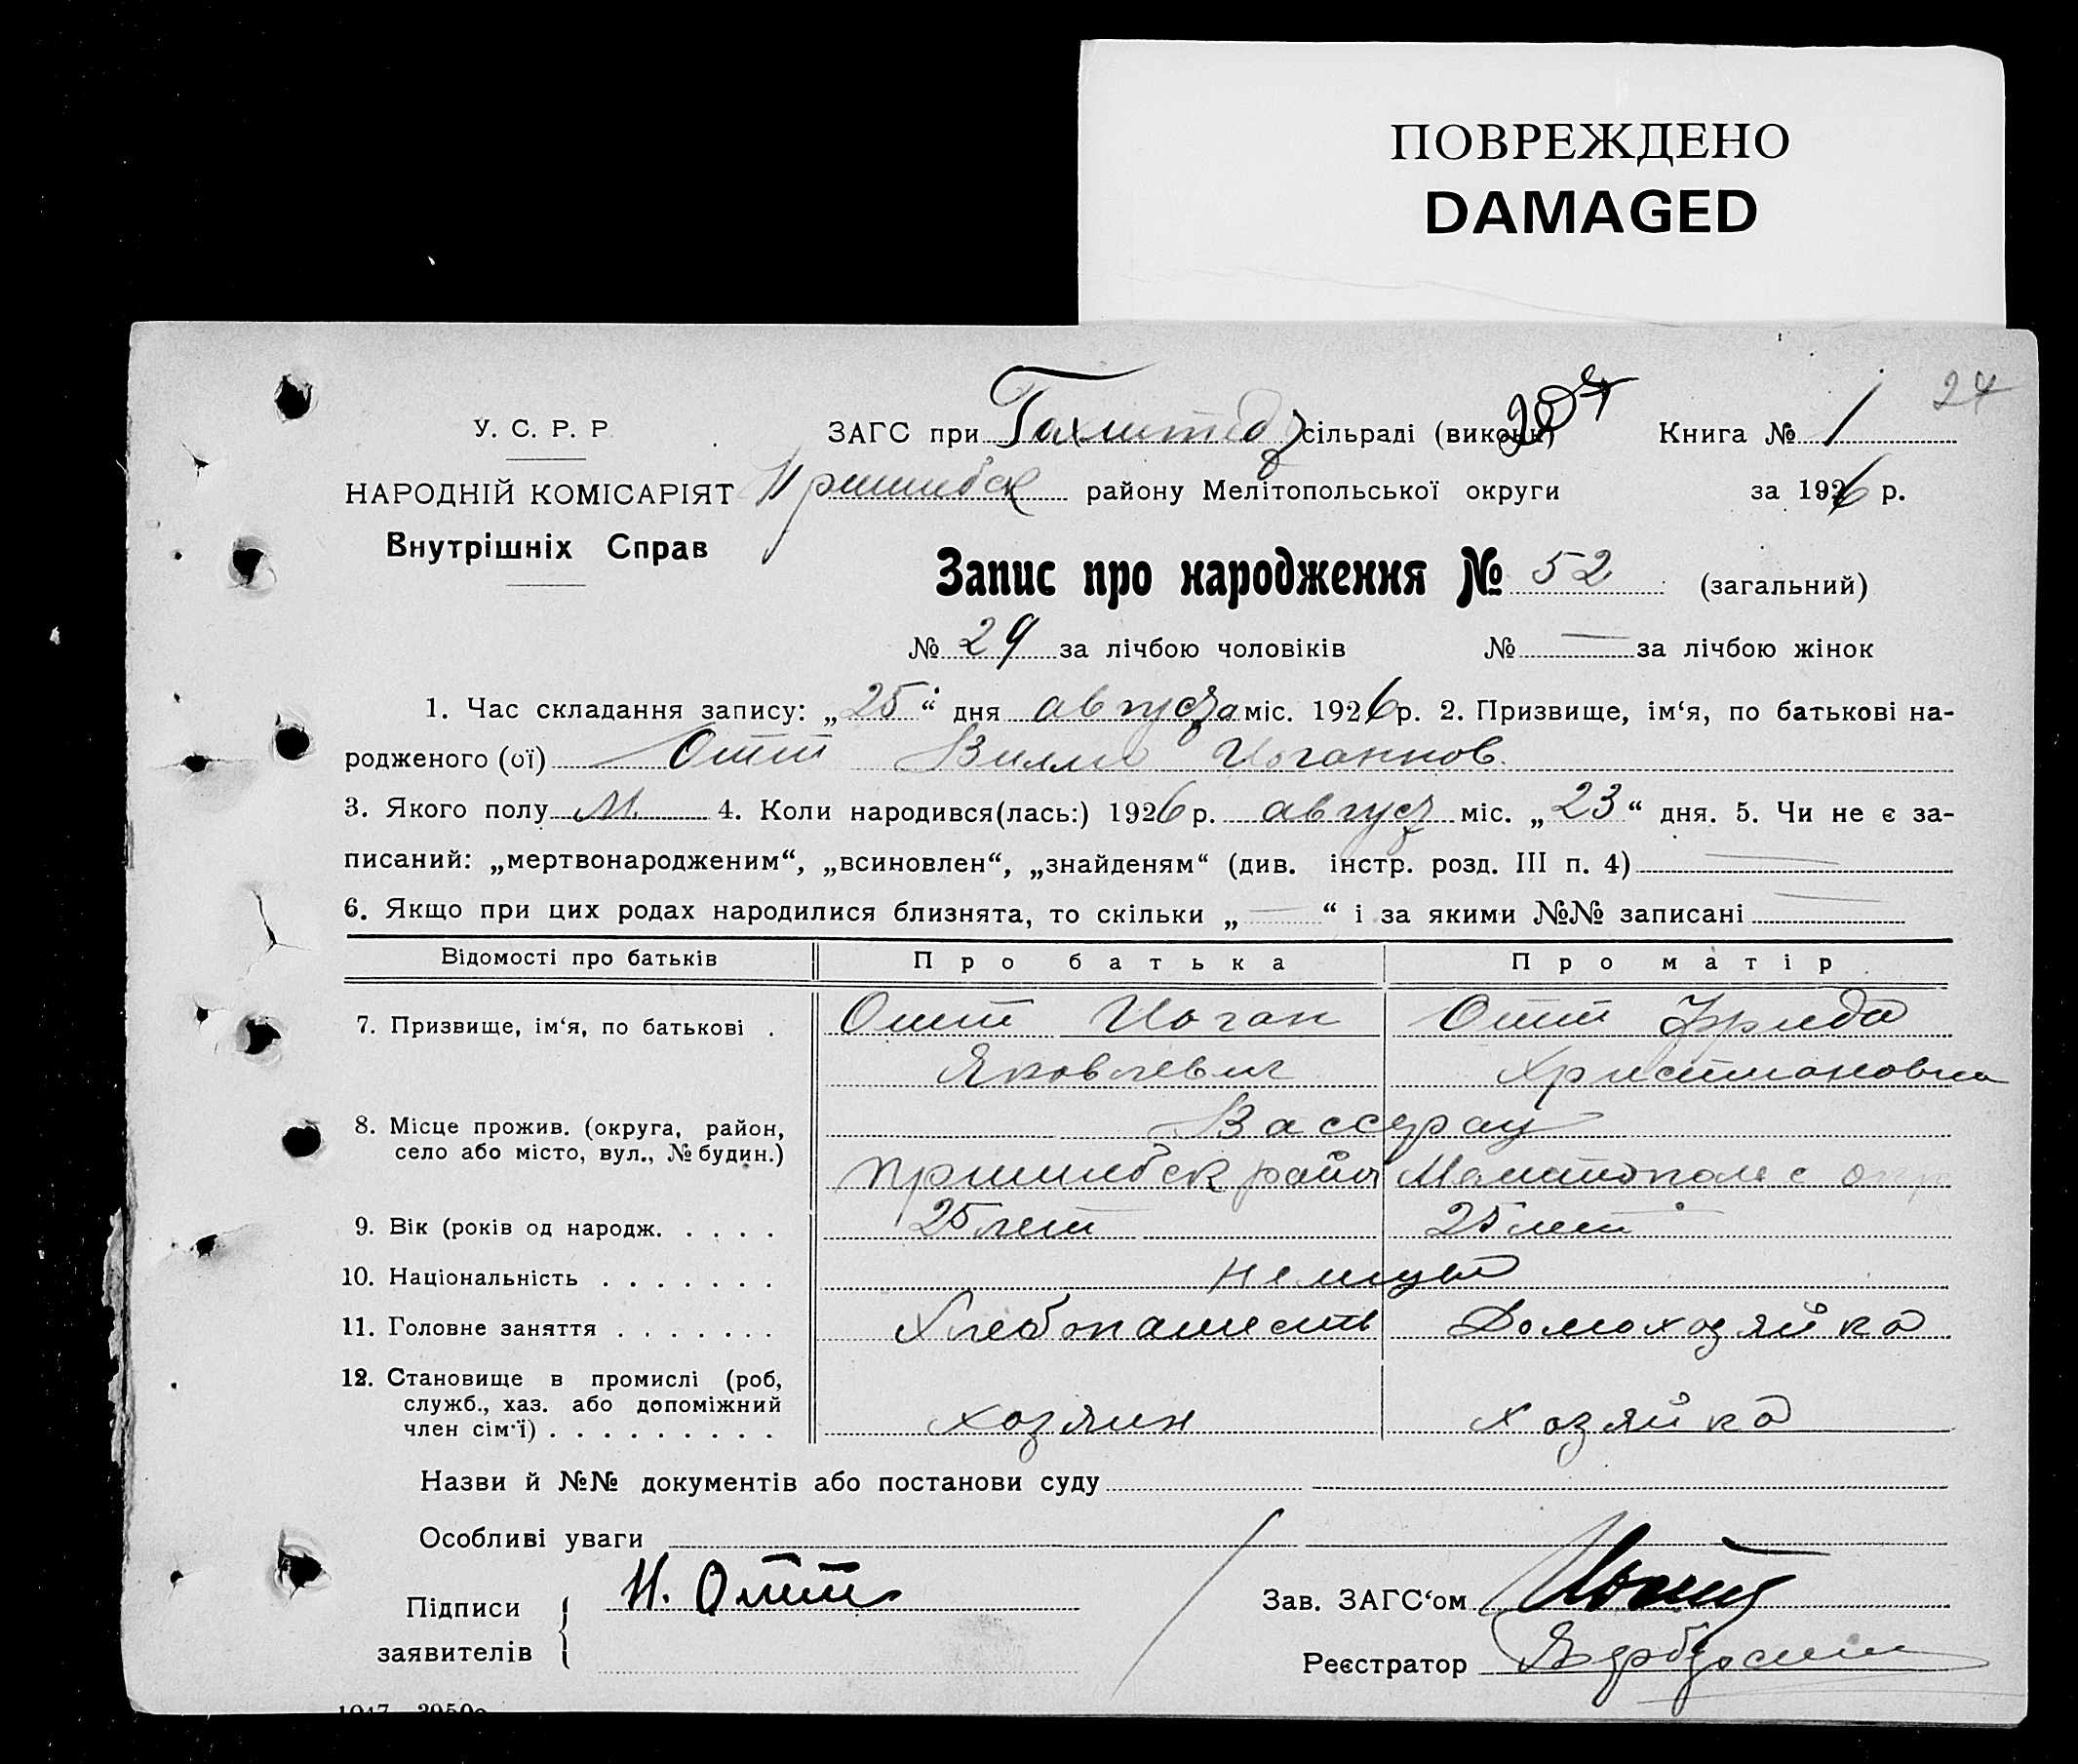 ПОВРЕЖДЕНО
DAMAGED
24
У. С. Р. Р.
НАРОДНІЙ КОМІСАРІЯТ
Внутрішніх Справ
ЗАГС при Гохштедт сільраді (виконк) Книга № 1
Пришибск району Мелітопольської округи за 1926 р.
Запис про народження № 52 (загальний)
№ 29 за лічбою чоловіків № — за лічбою жінок
1. Час складання запису: „25“ дня августа міс. 1926 р. 2. Призвище, ім‘я, по батькові на-
родженого (ої) Отт Вилли Иоганнов.
3. Якого полу М. 4. Коли народився(лась:) 1926 р. август міс. „23“ дня. 5. Чи не є за-
писаний: „мертвонародженим“, „всиновлен“, „знайденям“ (див. інстр. розд. III п. 4) —
6. Якщо при цих родах народилися близнята, то скільки „—“ і за якими №№ записані —
Відомості про батьків Про батька Про матір
7. Призвище, ім‘я, по батькові . Отт Иоган Отт Фрида
Яковлевич Христиановна
8. Місце прожив. (округа, район, село або місто, вул., № будин.) Вассерау
Пришибск район Мелитопольс окр
9. Вік (років од народж. . . . . 25 лет 25 лет
10. Національність . . . . . . . немцы
11. Головне заняття . . . . . . . Хлебопашест Домохозяйка
12. Становище в промислі (роб, служб., хаз. або допоміжний член сім‘ї) . . . . . . . . . хозяин хозяйка
Назви й №№ документів або постанови суду
Особливі уваги
Підписи заявителів И. Отт
Зав. ЗАГС‘ом
Реєстратор